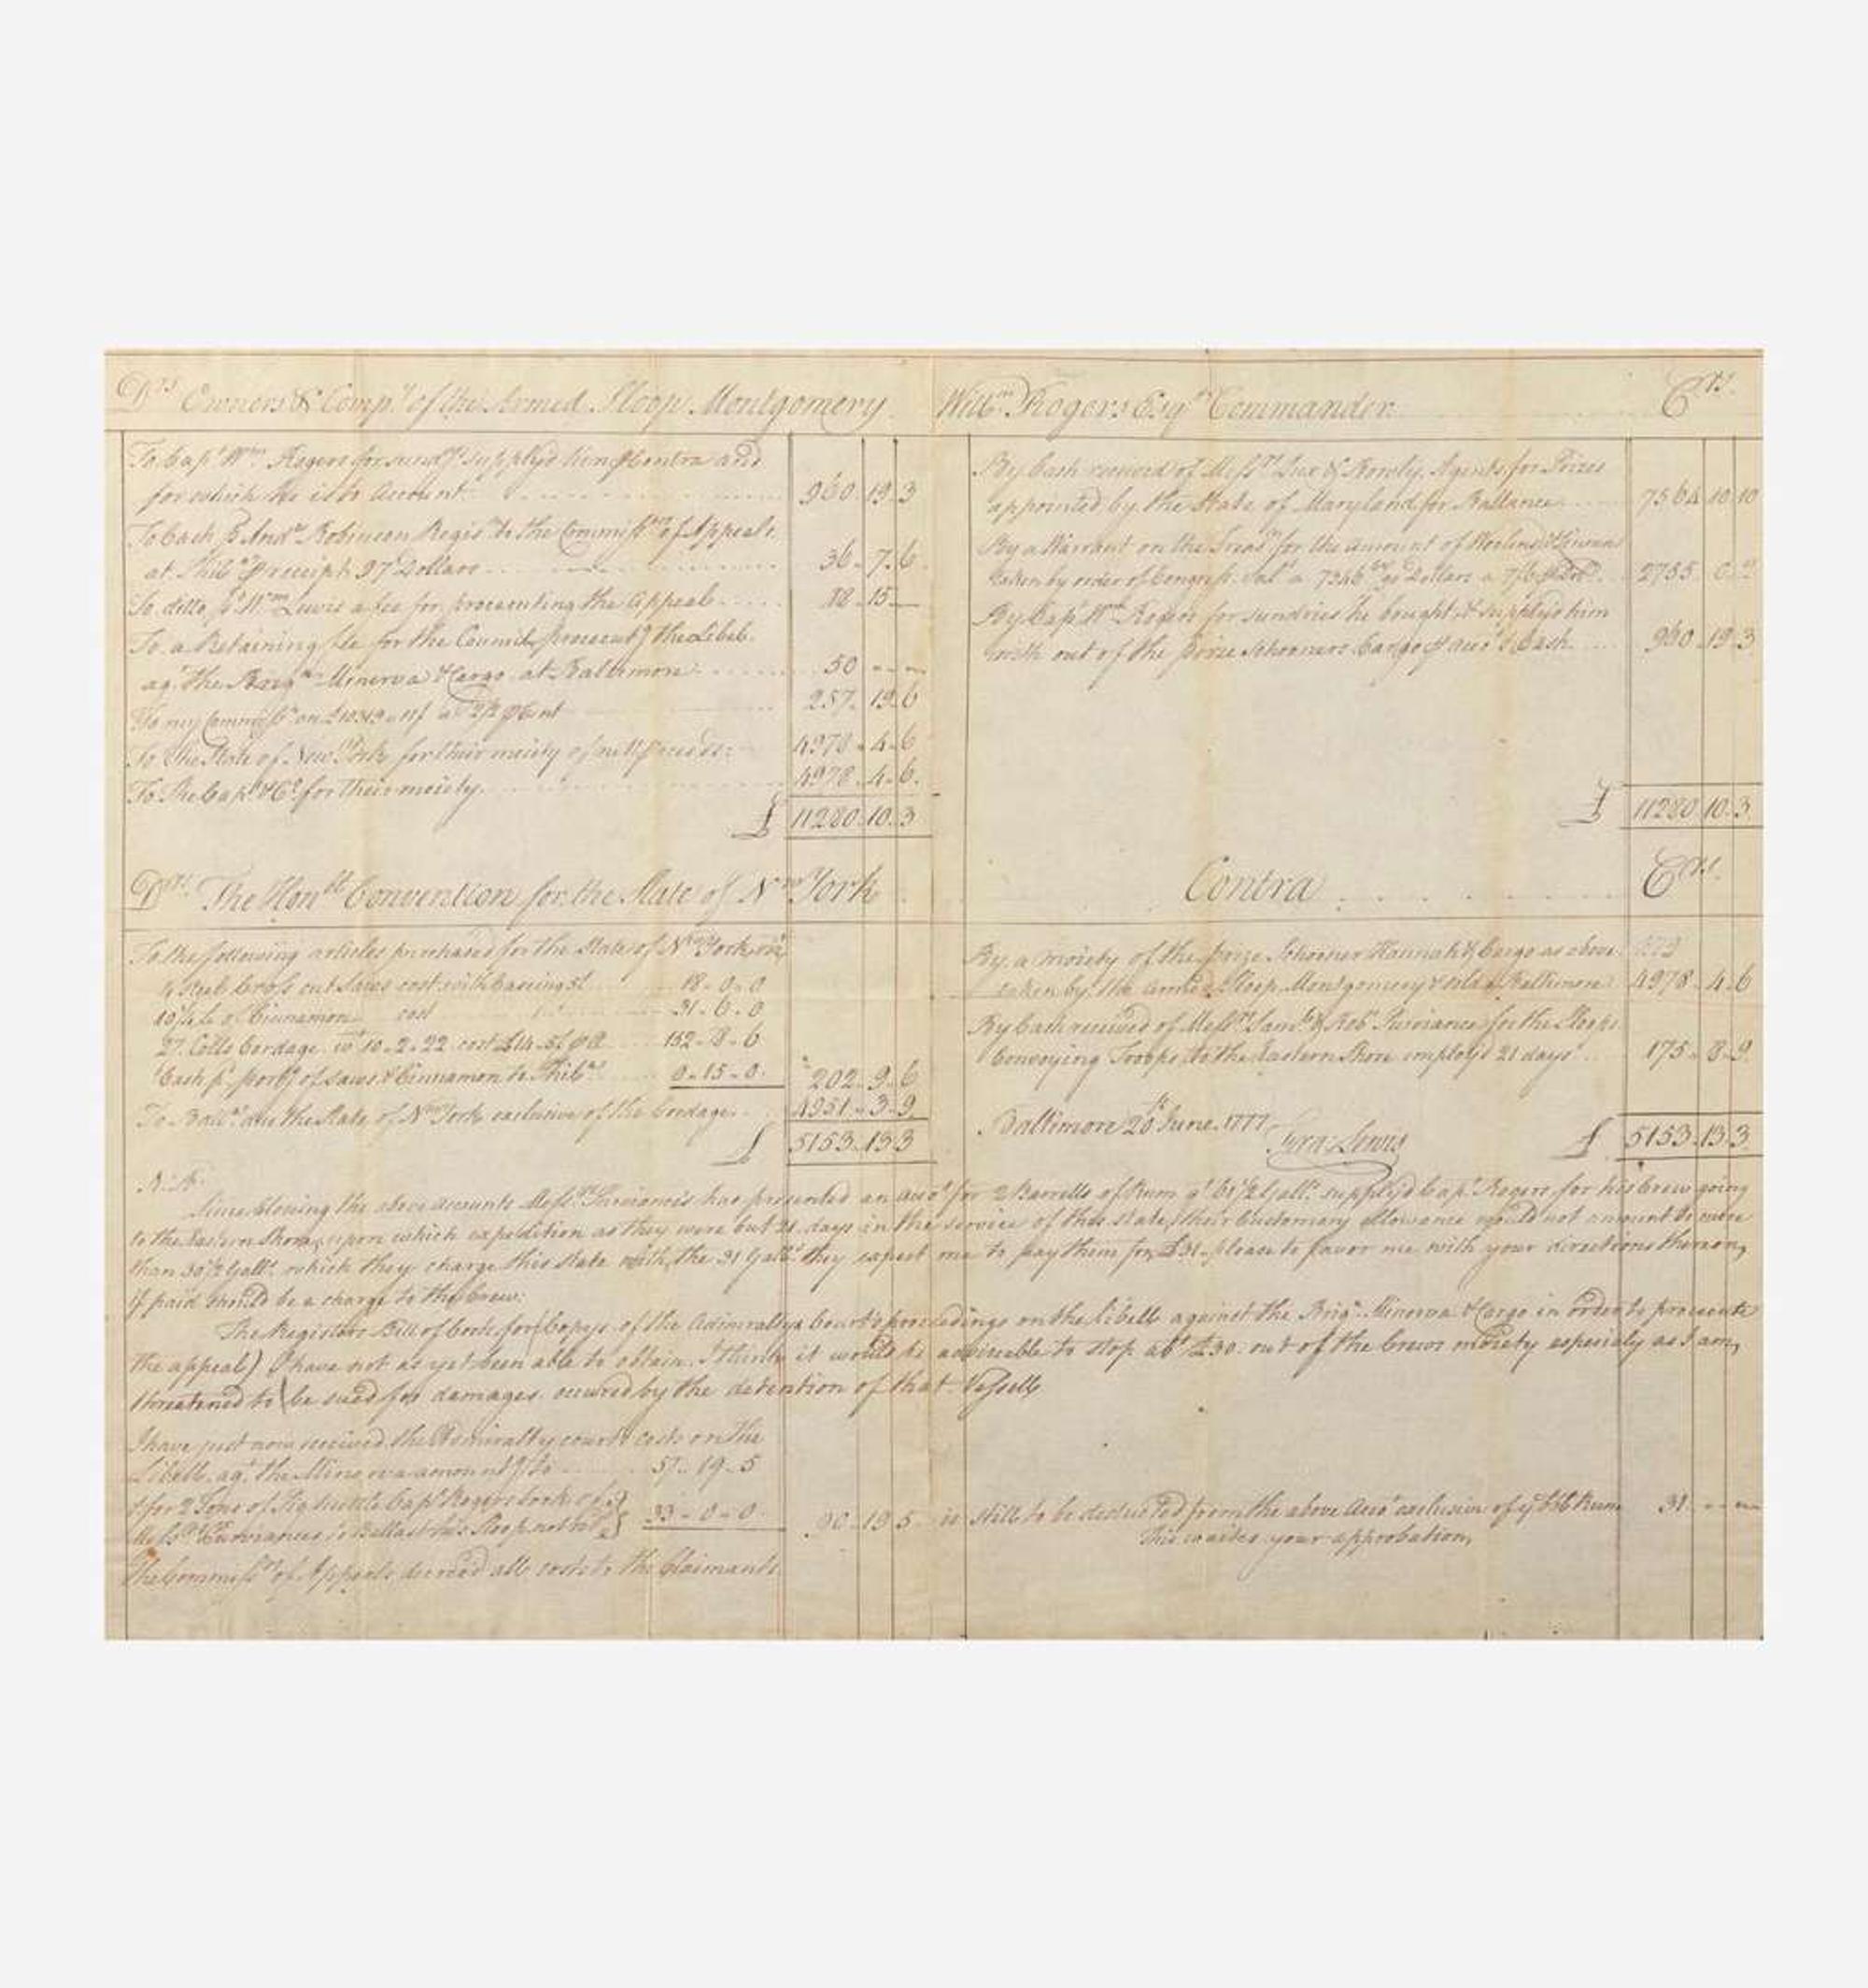 Drs Owners & Compy of the Armed Sloop Montgomery Willm Rogers Esqr Commander Crs.
To Capt Wm Rogers for sundys supply'd him p Contra and
for which he is to Account 960 19 3
To Cash p Andw Robinson Regisr to the Commissrs of Appeals
at Phila p receipt 97 Dollars 36 7 6
To ditto pd Wm Lewis a fee for prosecuting the Appeal 18 15
To a Retaining fee for the Council prosecutg the Libel
agt the Brign Minerva & Cargo at Baltimore 50
To my Commissn on £10319 a 2½ p Cent 257 19 6
To the State of New York for their moiety of nett proceeds 4978 4 6
To the Capt & Co for their moiety 4978 4 6
£ 11280 10 3
By Cash received of Messrs Lux & Bowly, Agents for Prizes
appointed by the State of Maryland for Ballance 7564 10 10
By a Warrant on the Treasy for the amount of
taken by order of Congress Dollars a 7/6 2755
By Capt Wm Rogers for sundries he bought & supply'd him
with out of the prize Schooners Cargo p acct & Cash 960 19 3
£ 11280 10 3
Drs The Honble Convention for the State of New York Contra Crs.
To the following articles purchased for the State of New York
Steel Cross cut Saws cost with 18-0-0
Cinnamon cost 31-6-0
27 Coils Cordage wt 10-2-22 cost 152-8-6
Cash pd portg of saws & Cinnamon to Phila 0-15-0 202 9 6
To Balle due the State of New York exclusive of the Cordage 4951 3 9
£ 5153 13 3
By a moiety of the prize Schooner Hannah & Cargo as above
taken by the armed Sloop Montgomery & sold a Baltimore 4978 4 6
By Cash received of Messrs Saml & Robt Purviance for the Sloops
Convoying Troops to the Eastern Shore employd 21 days 175 8 9
Baltimore 20th June 1777
Fras Lewis £ 5153 13 3
N.B.
Since Closing the above accounts Messrs Purviances has presented an acct for 2 Barrells of Rum qt 61½ Galls supplyd Capt Rogers for his Crew going
to the Eastern Shore, upon which expedition as they were but 21 days in the service of this state, their Customary allowance would not amount to more
than 30½ Galls which they charge this state with, the 31 Galls they expect me to pay them for, £31 please to favor me with your directions thereon,
if paid should be a charge to the Crew.
The Registers Bill of Costs for (Copys of the Admiralty Court's proceedings on the libell against the Brign Minerva & Cargo in order to prosecute
the appeal) I have not as yet been able to obtain. I think it would be adviseable to stop abt £30 out of the Crews moiety especialy as I am
threatened to be sued for damages occured by the detention of that Vessell
I have just now received the Admiralty court costs on the
Libell agt the Minerva amountg to 57-19-5
& for 2 Tons of Pig Capt Rogers took of
Messrs Purviances to Ballast his Sloop 33-0-0 90 19 5 is still to be deducted from the above Acct exclusive of ye Rum 31
This waites your approbation,
The Commissrs of Appeals decreed all costs to the Claimants